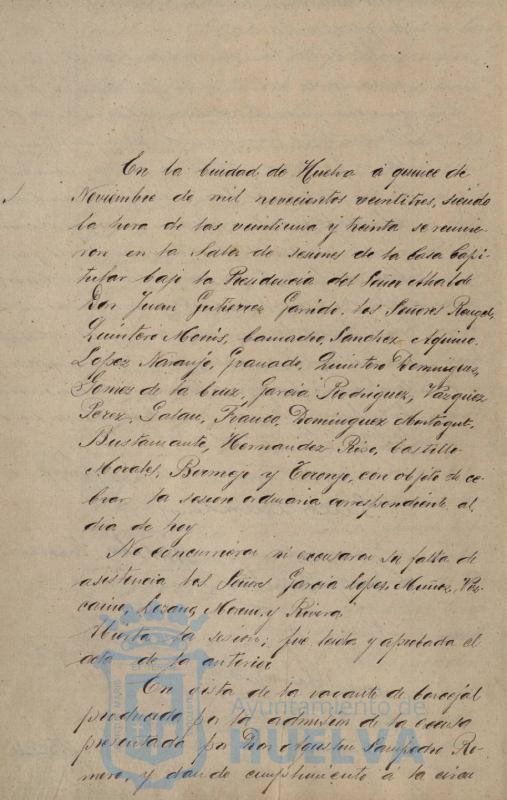 En la Ciudad de Huelva á quince de
Noviembre de mil novecientos veintitres, siendo
la hora de las veintiuna y treinta se reunie-
ron en la Sala de sesiones de la Casa Capi-
tular bajo la Presidencia del Señor Alcalde
Don Juan Gutierrez Garrido. los Señores Rangel,
Quintero Monís, Camacho, Sanchez Aquino,
Lopez Naranjo, Granado, Quintero Dominguez,
Gomez de la Cruz, García Rodriguez, Vazquez
Perez, Galan, Franco, Dominguez Montagut,
Bustamante, Hernandez Riso, Castillo
Morales, Bermejo y Toronjo, con objeto de ce-
brar la sesion ordinaria correspondiente al
dia de hoy
No concurrieron ni excusaron su falta de
asistencia los Señores García Lopez, Muñoz, Viz-
caino, Lozano, y Rivera
Abierta la sesion; fué leida y aprobada el
acta de la anterior
En vista de la vacante de Concejal
producida por la admision de la excusa
presentada por Don Agustin Sampedro Ro-
mero, y dando cumplimiento á la circu
Ayuntamiento de
HUELVA